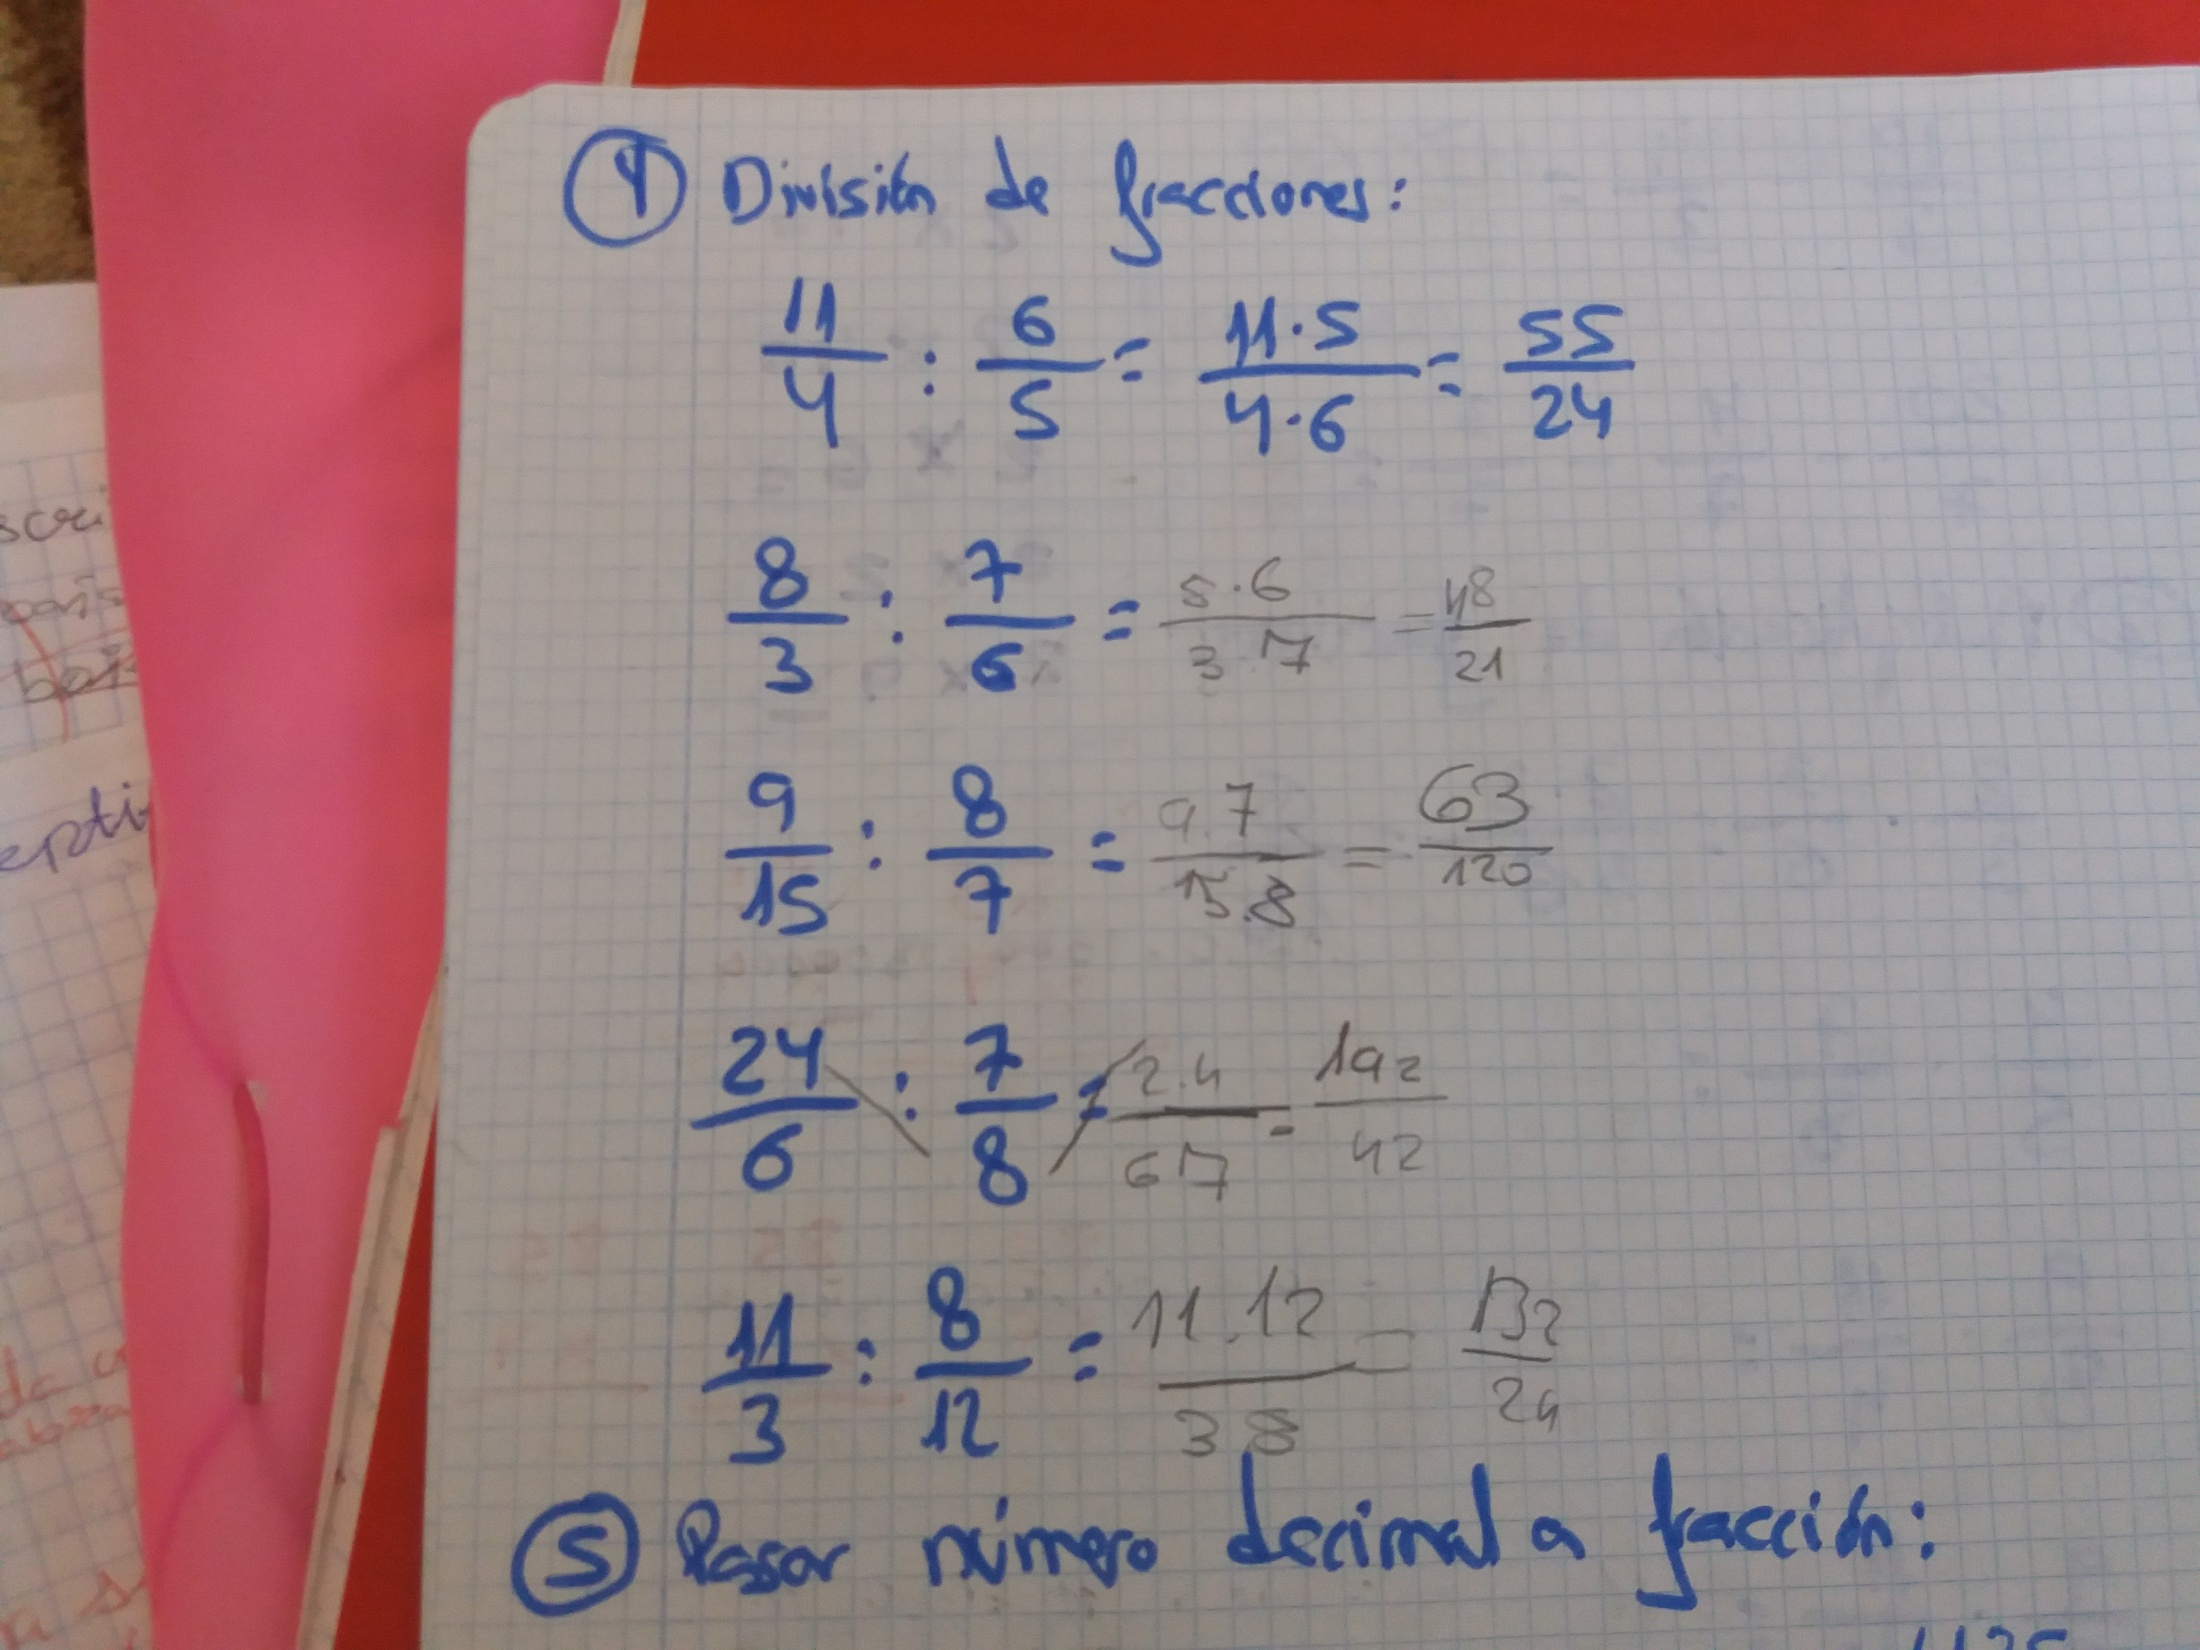 4 División de fracciones:
11/4 : 6/5 = 11·5/4·6 = 55/24
8/3 : 7/6 = 5·6/3 7 = 48/21
9/15 : 8/7 = 9.7/15.8 = 63/120
24/6 : 7/8 = 2.4/6 7 = 192/42
11/3 : 8/12 = 11.12/3 8 = 132/24
5 Pasar número decimal a fracción: